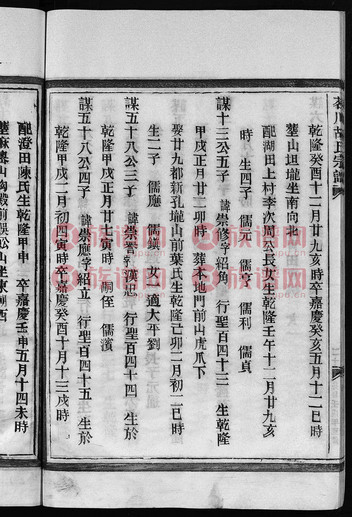 茗川胡氏宗譜
乾隆癸酉十二月廿九亥時卒嘉慶癸亥五月十二巳時
塋山垣壠坐南向北
配湖田上村李次周公長女生乾隆壬午十二月廿九亥
時 生四子 儒元 儒亨 儒利 儒貞
謀十三公五子 諱崇修字紹 行聖百四十三 生乾隆
甲戌正月廿二卯時 葬本地門前山虎爪下
娶廿九都新孔壠山前葉氏生乾隆己卯二月初二巳時
生二子 儒應 儒鎮 女 適大平劉
謀五十八公三子 諱崇晉字漢忠 行聖百四十四 生於
乾隆甲戌正月廿七寅時 嗣侄 儒濱
謀五十八公四子 諱崇應字紹立 行聖百四十五 生於
乾隆甲戌二月初四寅時卒嘉慶癸酉十月十三戌時
配澄田陳氏生乾隆甲申 卒嘉慶壬申五月十四未時
族譜網